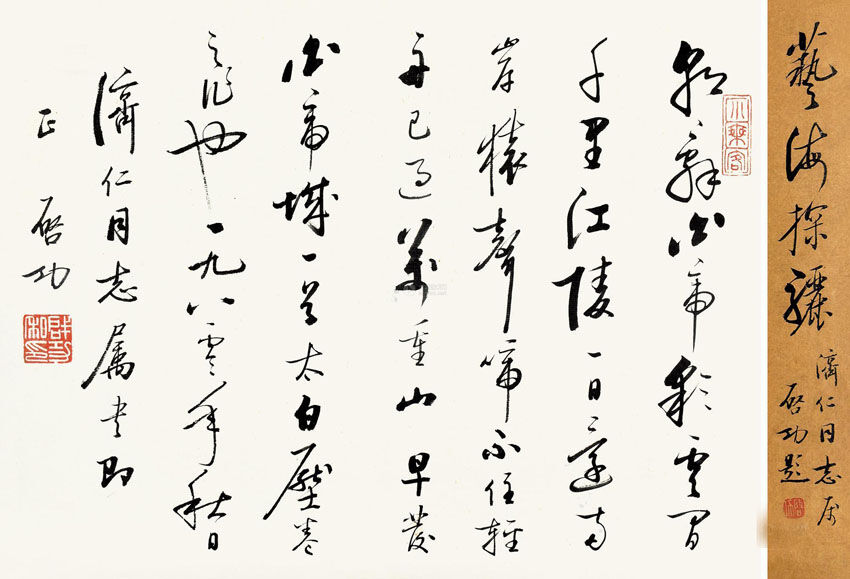 藝海探驪
濟仁同志屬
啓功題
小乘客
朝辭白帝彩雲間
千里江陵一日還兩
岸猿聲啼不住輕
舟已過萬重山早發
白帝城一首太白壓卷
之作也一九八零年秋日
濟仁同志屬書即
正 啓功